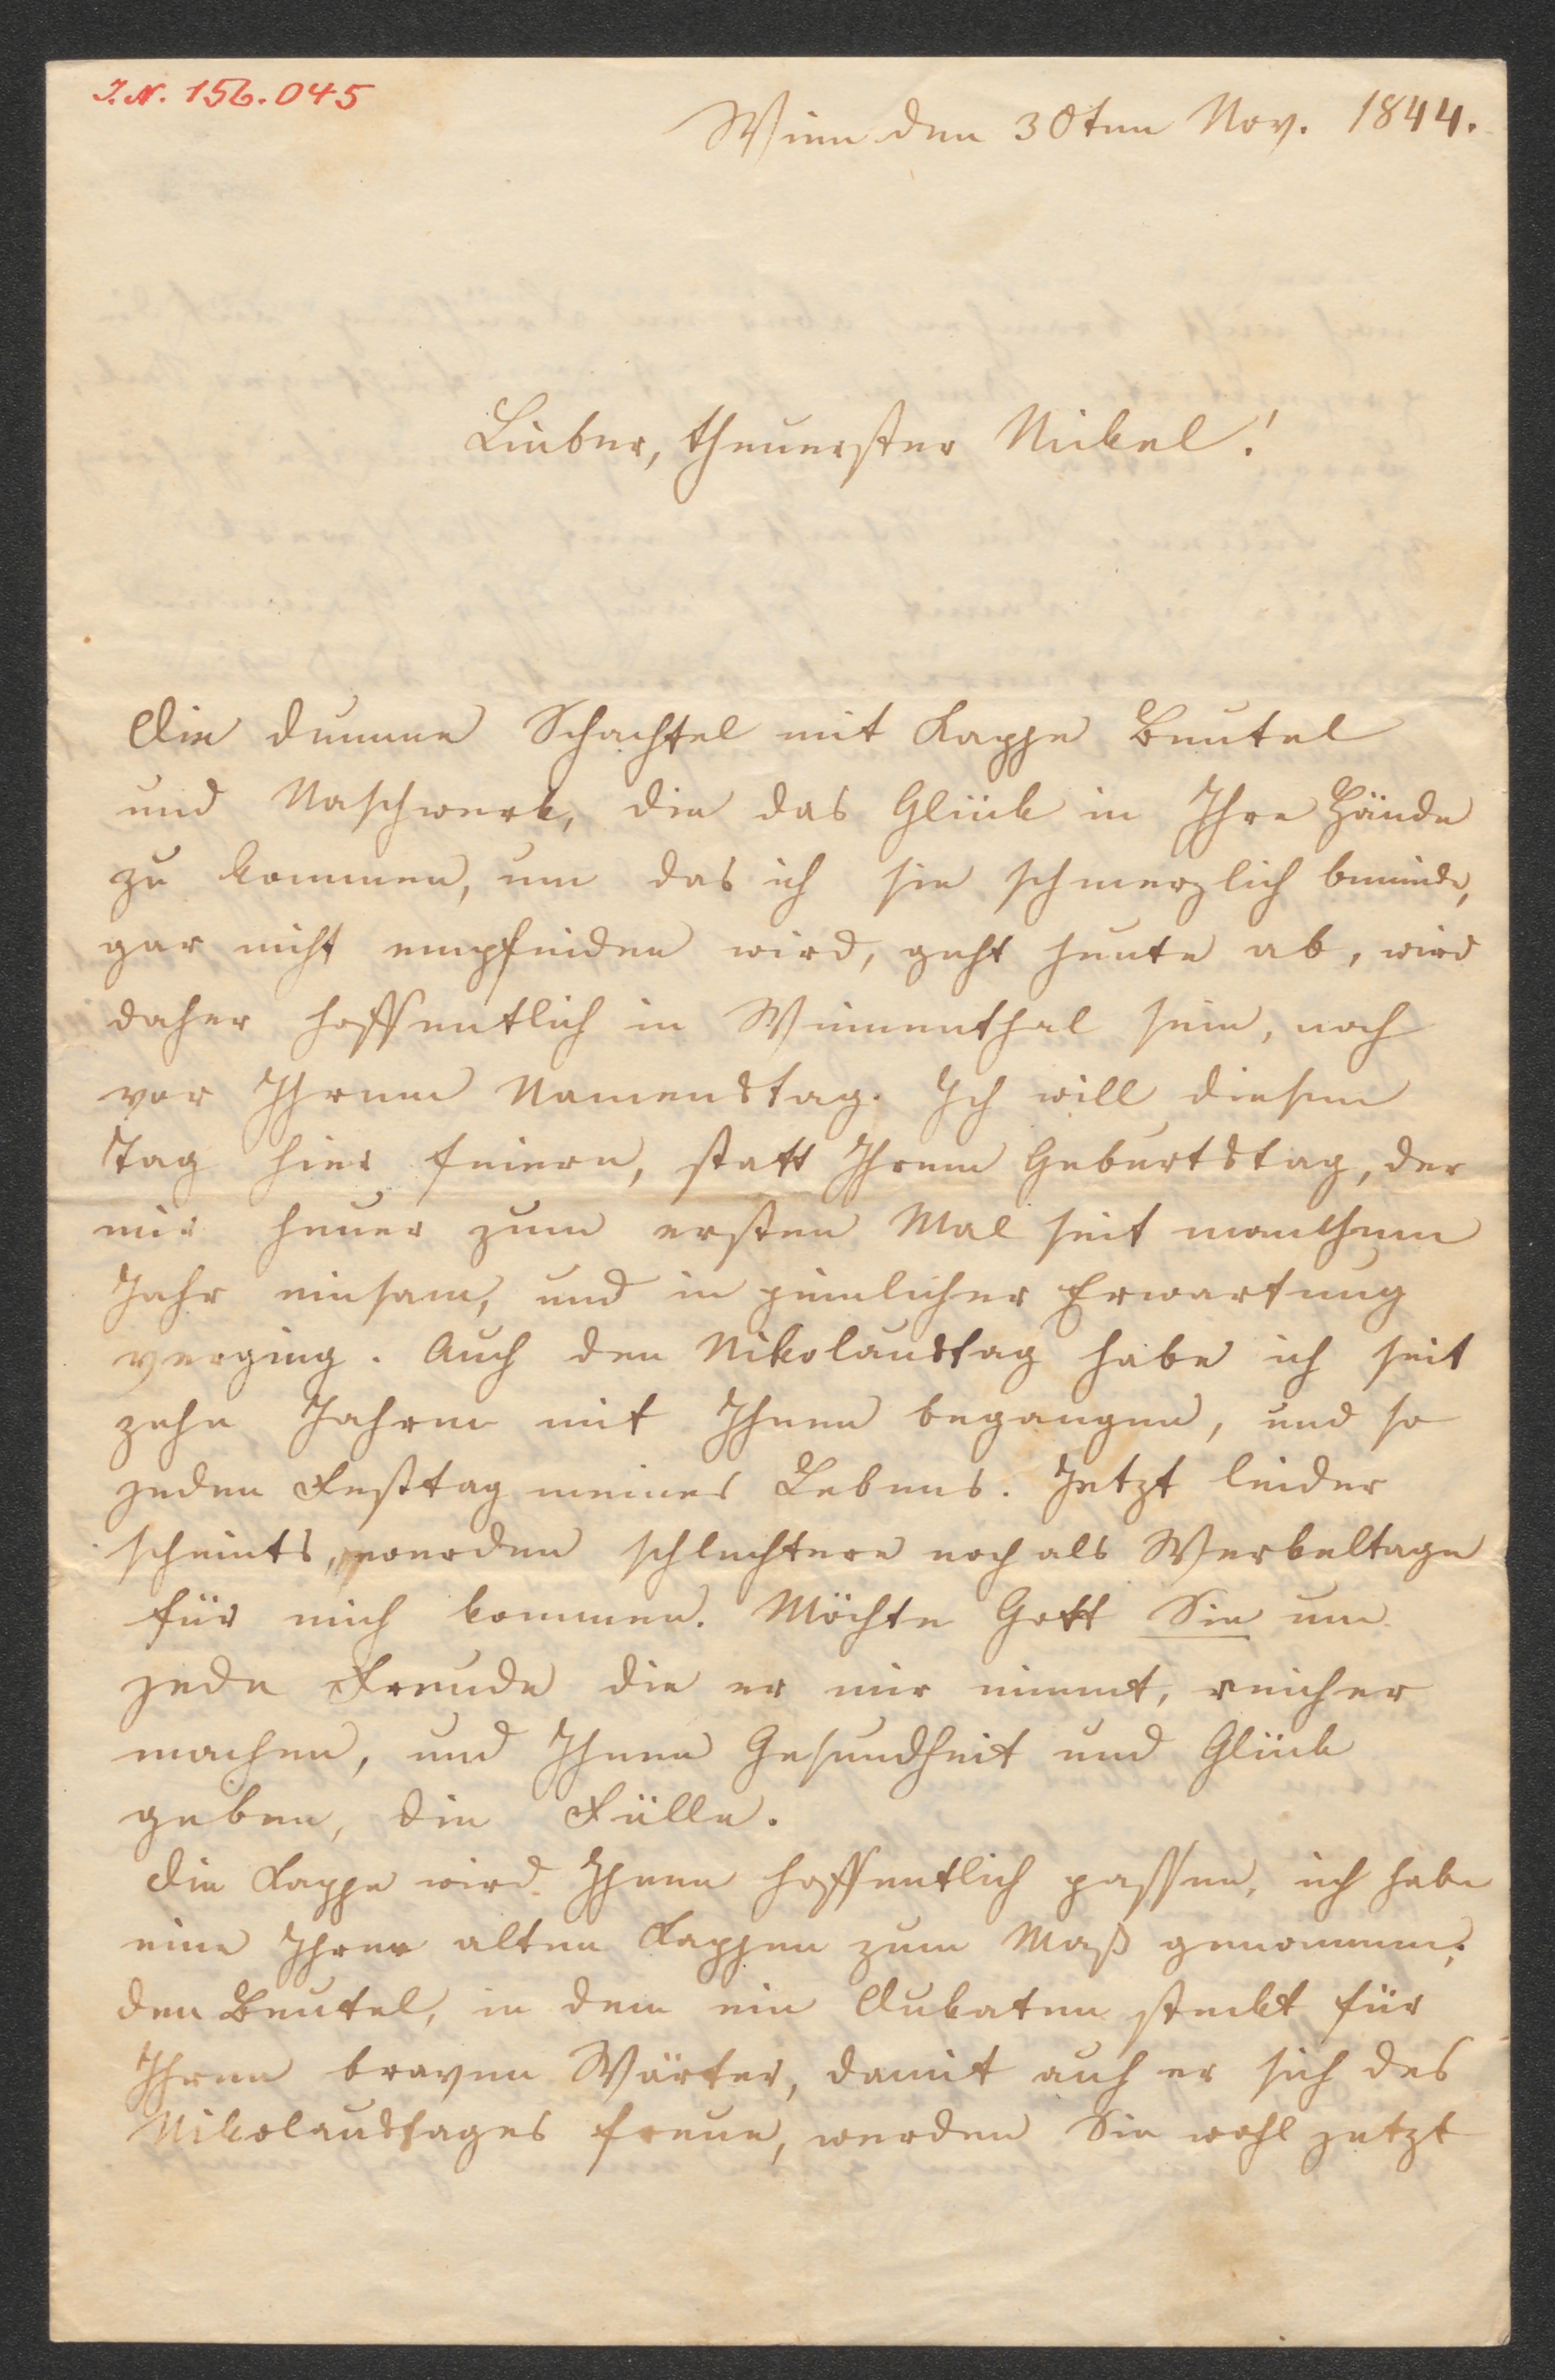 I.N. 156.045
Wien den 30ten Nov. 1844.
Lieber, theuerster Nickel!
Die dumme Schachtel mit Kappe Beutel
und Naschwerk, die das Glück in Ihre Hände
zu kommen, um das ich sie schmerzlich beneide,
gar nicht empfinden wird, geht heute ab, wird
daher hoffentlich in Winnenthal sein, noch
vor Ihrem Namenstag. Ich will diesen
Tag hier feiern, statt Ihrem Geburtstag, der
mir heuer zum ersten Mal seit manchem
Jahr einsam, und in peinlicher Erwartung
verging. Auch den Nikolaustag habe ich seit
zehn Jahren mit Ihnen begangen, und so
jeden Festtag meines Lebens. Jetzt leider
scheints, werden schlechtere noch als Werkeltage
für mich kommen. Möchte Gott Sie um
jede Freude die er mir nimmt, reicher
machen, und Ihnen Gesundheit und Glück
geben, die Fülle.
Die Kappe wird Ihnen hoffentlich passen, ich habe
eine Ihrer alten Kappen zum Maß genommen;
den Beutel, in dem ein Dukaten steckt für
Ihren braven Wärter, damit auch er sich des
Nikolaustages freue, werden Sie wohl jetzt